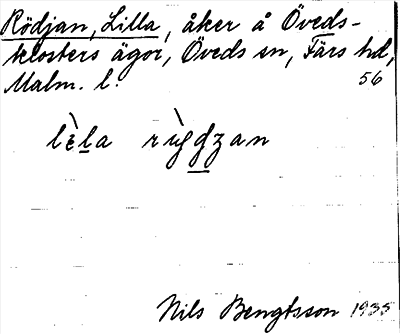 Rödjan, Lilla, åker å Öveds-
klosters ägor, Öveds sn, Färs hd,
Malm. l. 56
lὲla rỳgdzan
Nils Bengtsson 1935